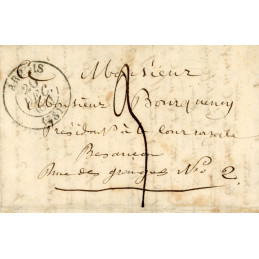 A
Monsieur
Monsieur Bourquenoy
Président à la cour royale
Besancon
Rue des granges No 2